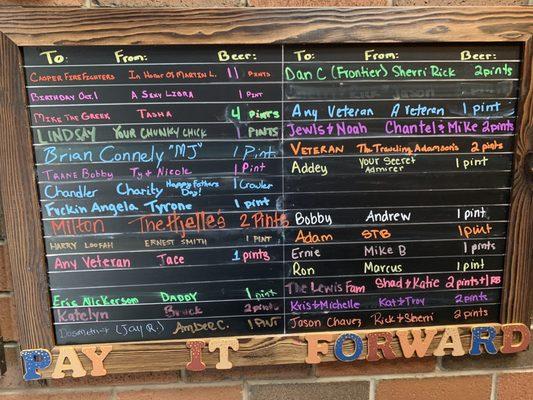 To: From: Beer:
CASPER FIREFIGHTERS IN HONOR OF MARTIN L. 11 PINTS
BIRTHDAY OCT. 1 A SEXY LIBRA 1 PINT
MIKE THE GREEK TASHA 4 PINTS
LINDSAY YOUR CHUNKY CHICK 1 PINTS
Brian Connely "MJ" 1 Pint
TRANE BOBBY Ty & Nicole 1 Pint
Chandler Charity Happy Fathers Day! 1 Crowler
Fuckin Angela Tyrone 1 pint
Milton The Hjelles 2 Pints
HARRY LOOFAH ERNEST SMITH 1 PINT
Any Veteran Jace 1 pints
Eric Nickerson DADDY 1 pint
Katelyn Brock 2 pints
(Jay R.) AMBER C. 1 Pint
To: From: Beer:
Dan C (Frontier) Sherri Rick 2 pints
Any Veteran A Veteran 1 pint
Jewls & Noah Chantel & Mike 2 pints
VETERAN The Traveling Adamson's 2 pints
Addey Your Secret Admirer 1 pint
Bobby Andrew 1 pint
Adam STB 1 pint
Ernie Mike B 1 pints
Ron Marcus 1 pint
The Lewis Fam Shad & Katie 2 pints + 1 RB
Kris & Michelle Kat & Troy 2 pints
Jason Chavez Rick & Sherri 2 pints
PAY IT FORWARD